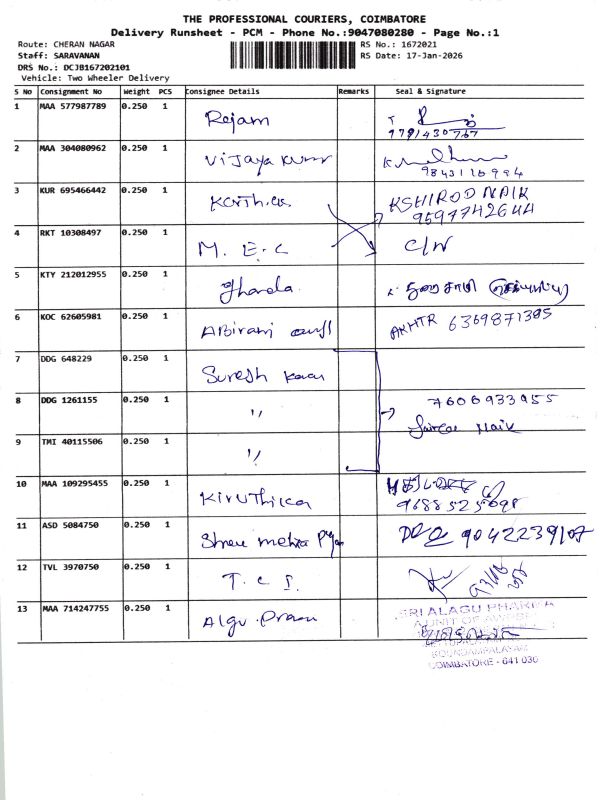 THE PROFESSIONAL COURIERS, COIMBATORE
Delivery Runsheet - PCM - Phone No.:9047080280 - Page No.:1
Route: CHERAN NAGAR
Staff: SARAVANAN
DRS No.: DCJB167202101
Vehicle: Two Wheeler Delivery
RS No.: 1672021
RS Date: 17-Jan-2026
S No Consignment No Weight PCS Consignee Details Remarks Seal & Signature
1 MAA 577987789 0.250 1 Rejam
2 MAA 304080962 0.250 1 Vijaya Kumr
3 KUR 695466442 0.250 1 KSHIROD NAIK
4 RKT 10308497 0.250 1 M. E. C C/W
5 KTY 212012955 0.250 1
6 KOC 62605981 0.250 1 ABirami AKHTR 6369871395
7 DDG 648229 0.250 1 Suresh
8 DDG 1261155 0.250 1 ,, 7606933955
Naik
9 TMI 40115506 0.250 1 ,,
10 MAA 109295455 0.250 1 Kiruthika
11 ASD 5084750 0.250 1 Shree Mehta
12 TVL 3970750 0.250 1 T. C I.
13 MAA 714247755 0.250 1
SRI ALAGU PHARMA
A UNIT OF
GOUNDAMPALAYAM
COIMBATORE - 641 030